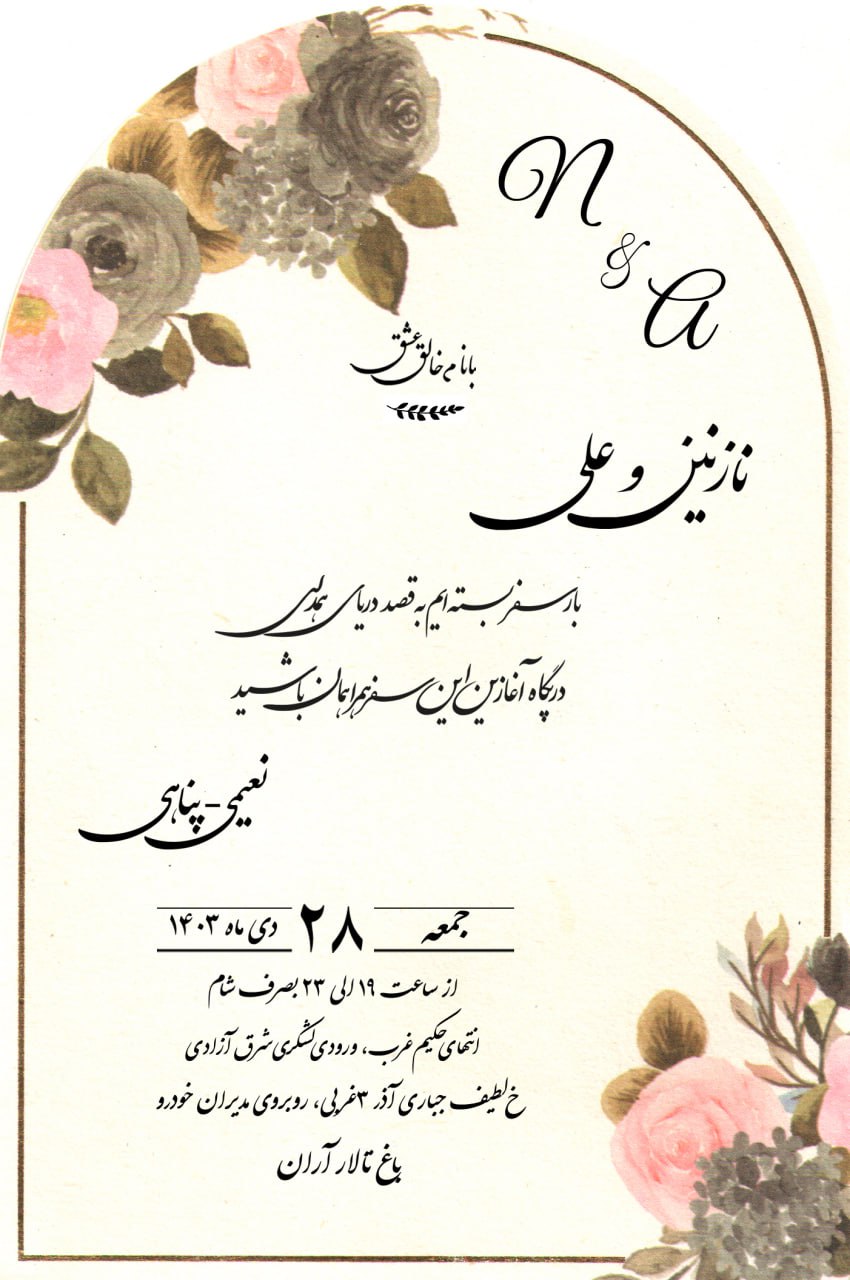 N
&
A
با نام خالق عشق
نازنین و علی
بار سفر بسته ایم به قصد دریای همدلی
در پگاه آغازین این سفر همراهمان باشید
نعیمی - پناهی
جمعه ۲۸ دی ماه ۱۴۰۳
از ساعت ۱۹ الی ۲۳ بصرف شام
انتهای حکیم غرب، ورودی لشگری شرق آزادی
خ لطیف جباری آذر ۳ غربی، روبروی مدیران خودرو
باغ تالار آران